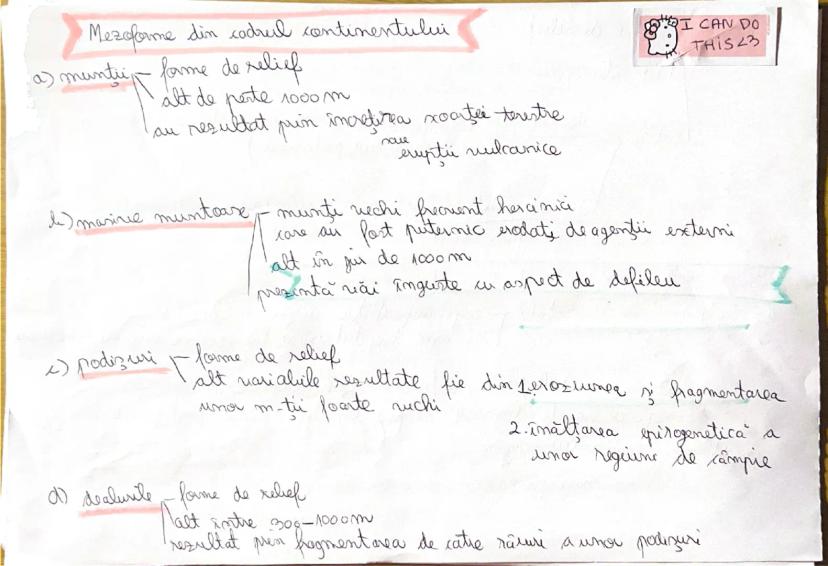 Mezoforme din cadrul continentului
I CAN DO
THIS<3
a) munții - forme de relief
alt de peste 1000m
au rezultat prin încrețirea scoarței terestre
sau
erupții vulcanice
b) masive muntoase - munți vechi frecvent hercinici
care au fost puternic erodați de agenții externi
alt în jur de 1000m
prezintă văi înguste cu aspect de defileu
c) podișuri - forme de relief
alt variabile rezultate fie din 1.eroziunea și fragmentarea
unor m-ții foarte vechi
2.înălțarea epirogenetică a
unor regiuni de câmpie
d) dealurile - forme de relief
alt între 300-1000m
rezultat prin fragmentarea de către râuri a unor podișuri